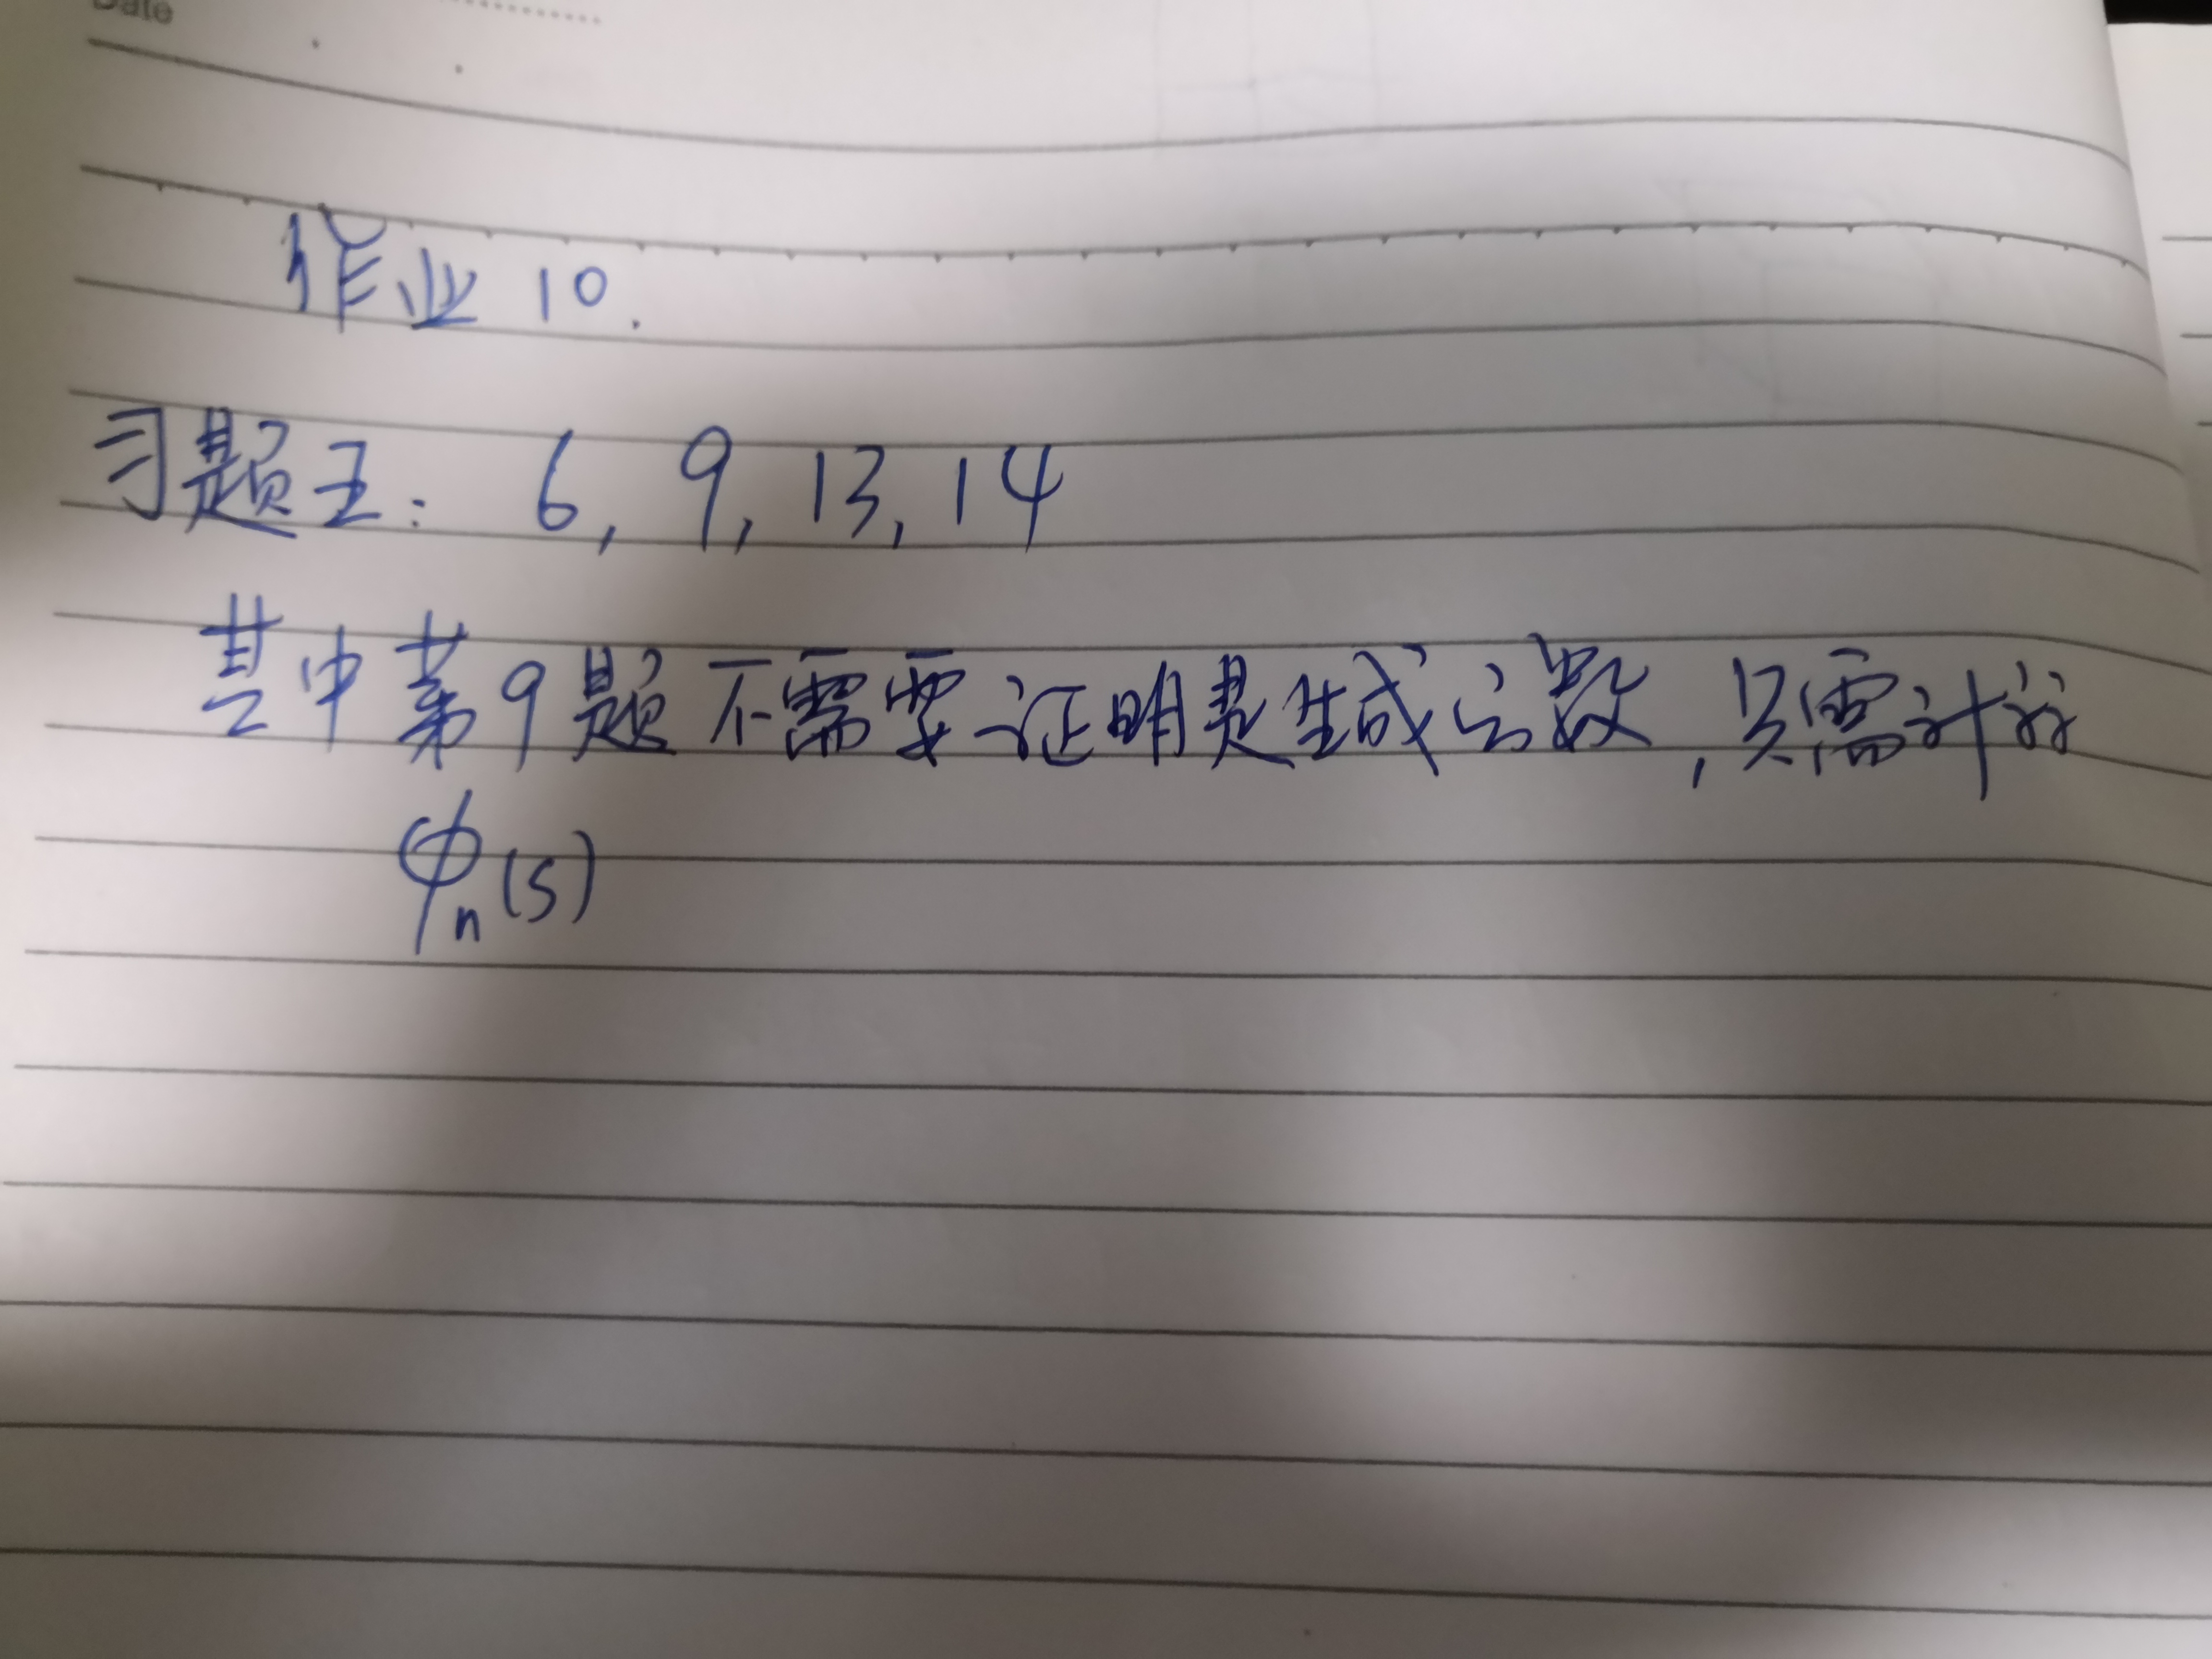 Date
作业 10.
习题五: 6, 9, 13, 14
其中第9题不需要证明是生成函数, 只需计算
ϕn(s)